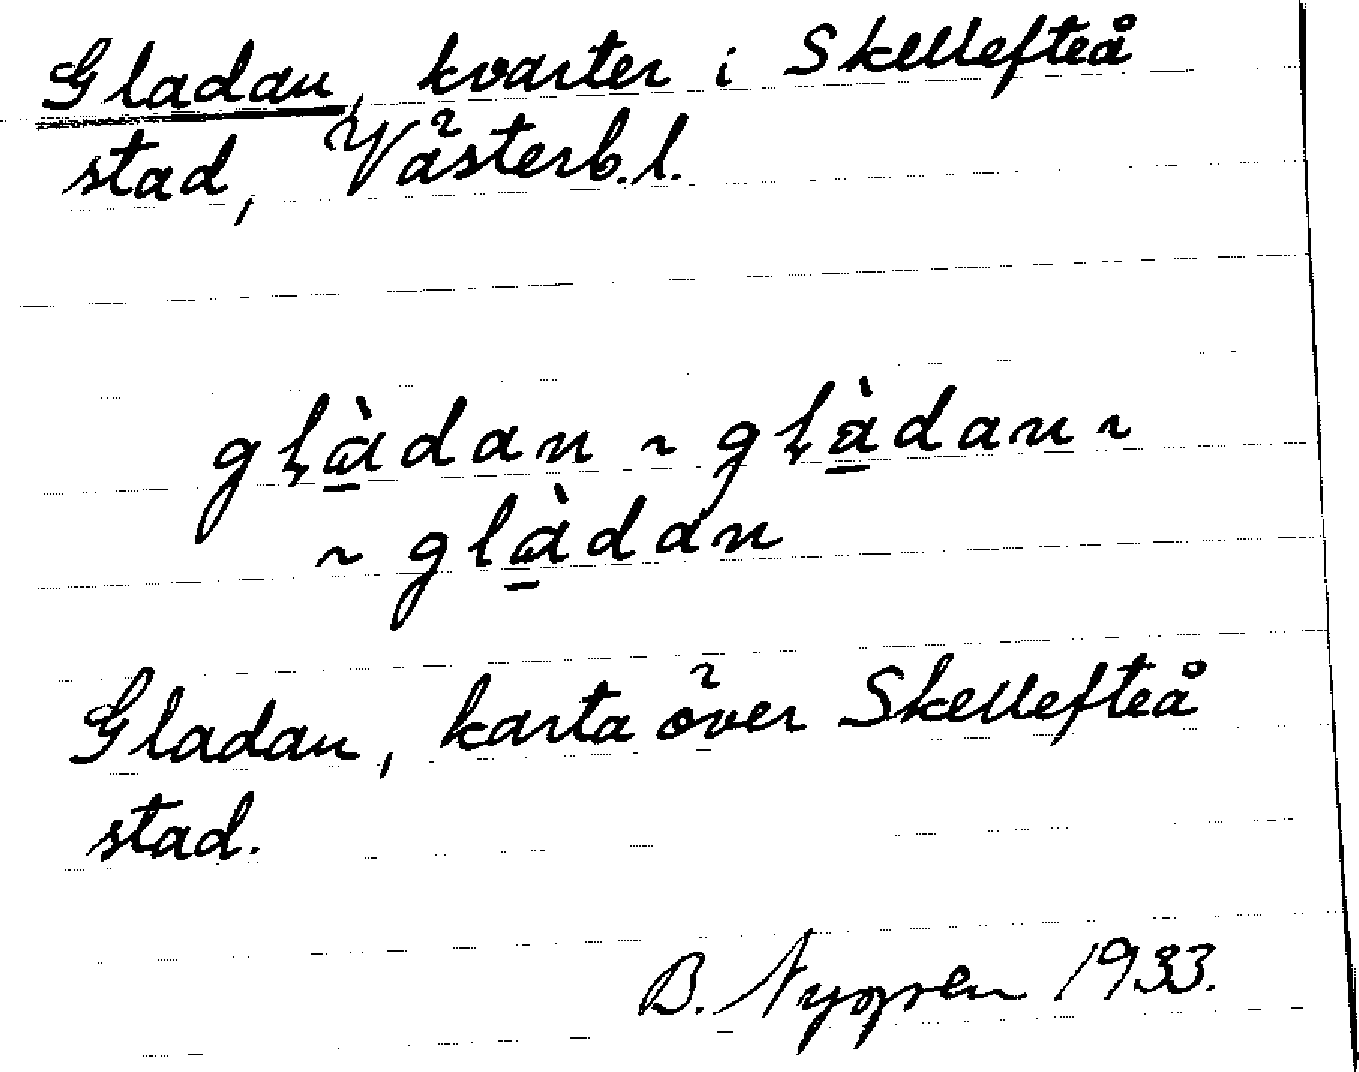 Gladan, kvarter i Skellefteå
stad, Västerb.l.
gḷà̱dan ~ gḷà̱dan ~
~ glà̱dan
Gladan, karta över Skellefteå
stad.
B. Nygren 1933.